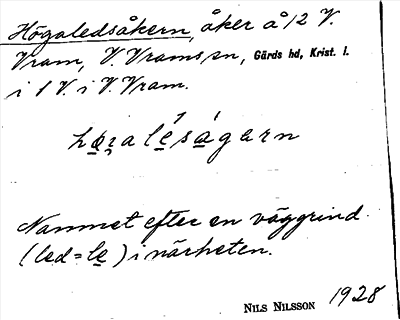 Högaledsåkern, åker å 12 V.
Vram, V. Vrams sn, Gärds hd, Krist. l.
i 1 V. i V. Vram.
Nammet efter en väggrind
(led = le) i närheten.
NILS NILSSON 1928